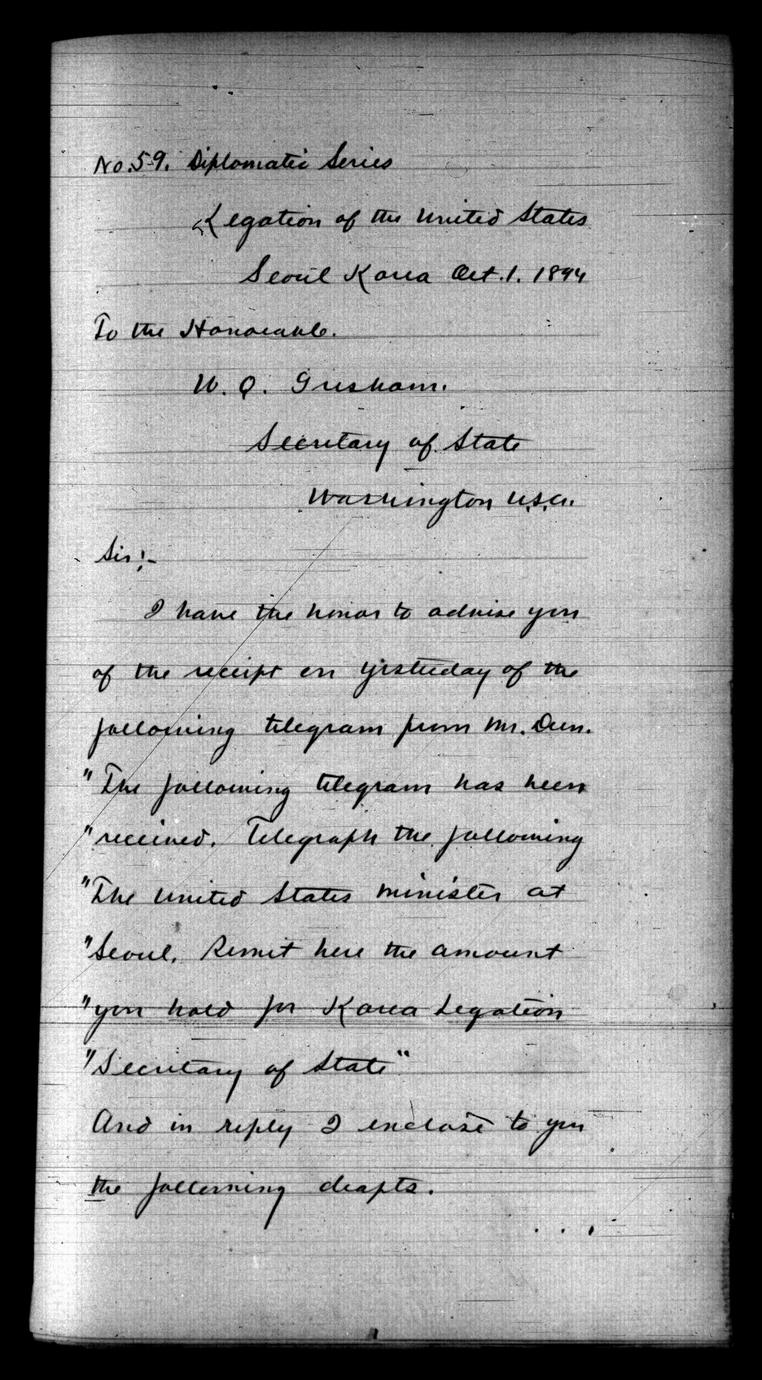 No. 59. Diplomatic Series
Legation of the United States
Seoul Korea Oct. 1. 1894
To the Honorable.
W. Q. Gresham.
Secretary of State
Washington U.S.A.
Sir:-
I have the honor to advise you
of the receipt on yesterday of the
following telegram from Mr. Dun.
"The following telegram has been
"received. Telegraph the following
"The United States Minister at
"Seoul. Remit here the amount
"you hold for Korea Legation
"Secretary of State"
And in reply I enclose to you
the following drafts.
. . .